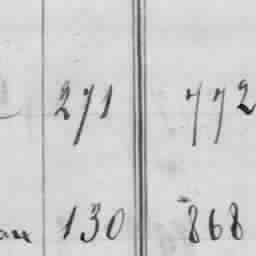 271 772
130 868